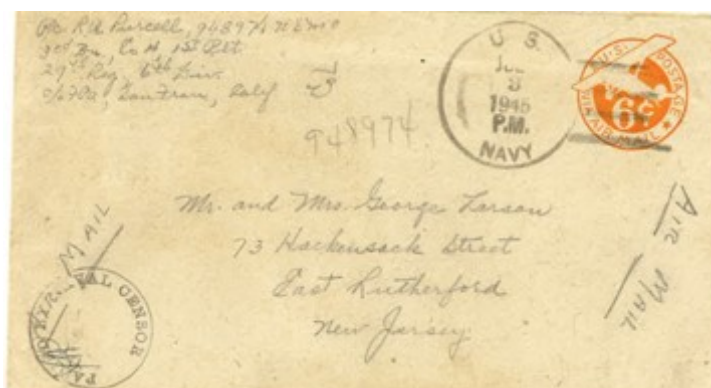 Pvt. R.A. Purcell, 948974 USMC
3rd Bn, Co H, 1st Plt
29th Reg, 6th Div.
c/o FPO, San Fran, Calif
948974
U. S.
1945
P.M.
NAVY
U.S. POSTAGE
VIA AIR MAIL
6¢
Mr. and Mrs. George Larson
73 Hackensack Street
East Rutherford
New Jersey
AIR MAIL
MAIL
PASSED BY NAVAL CENSOR